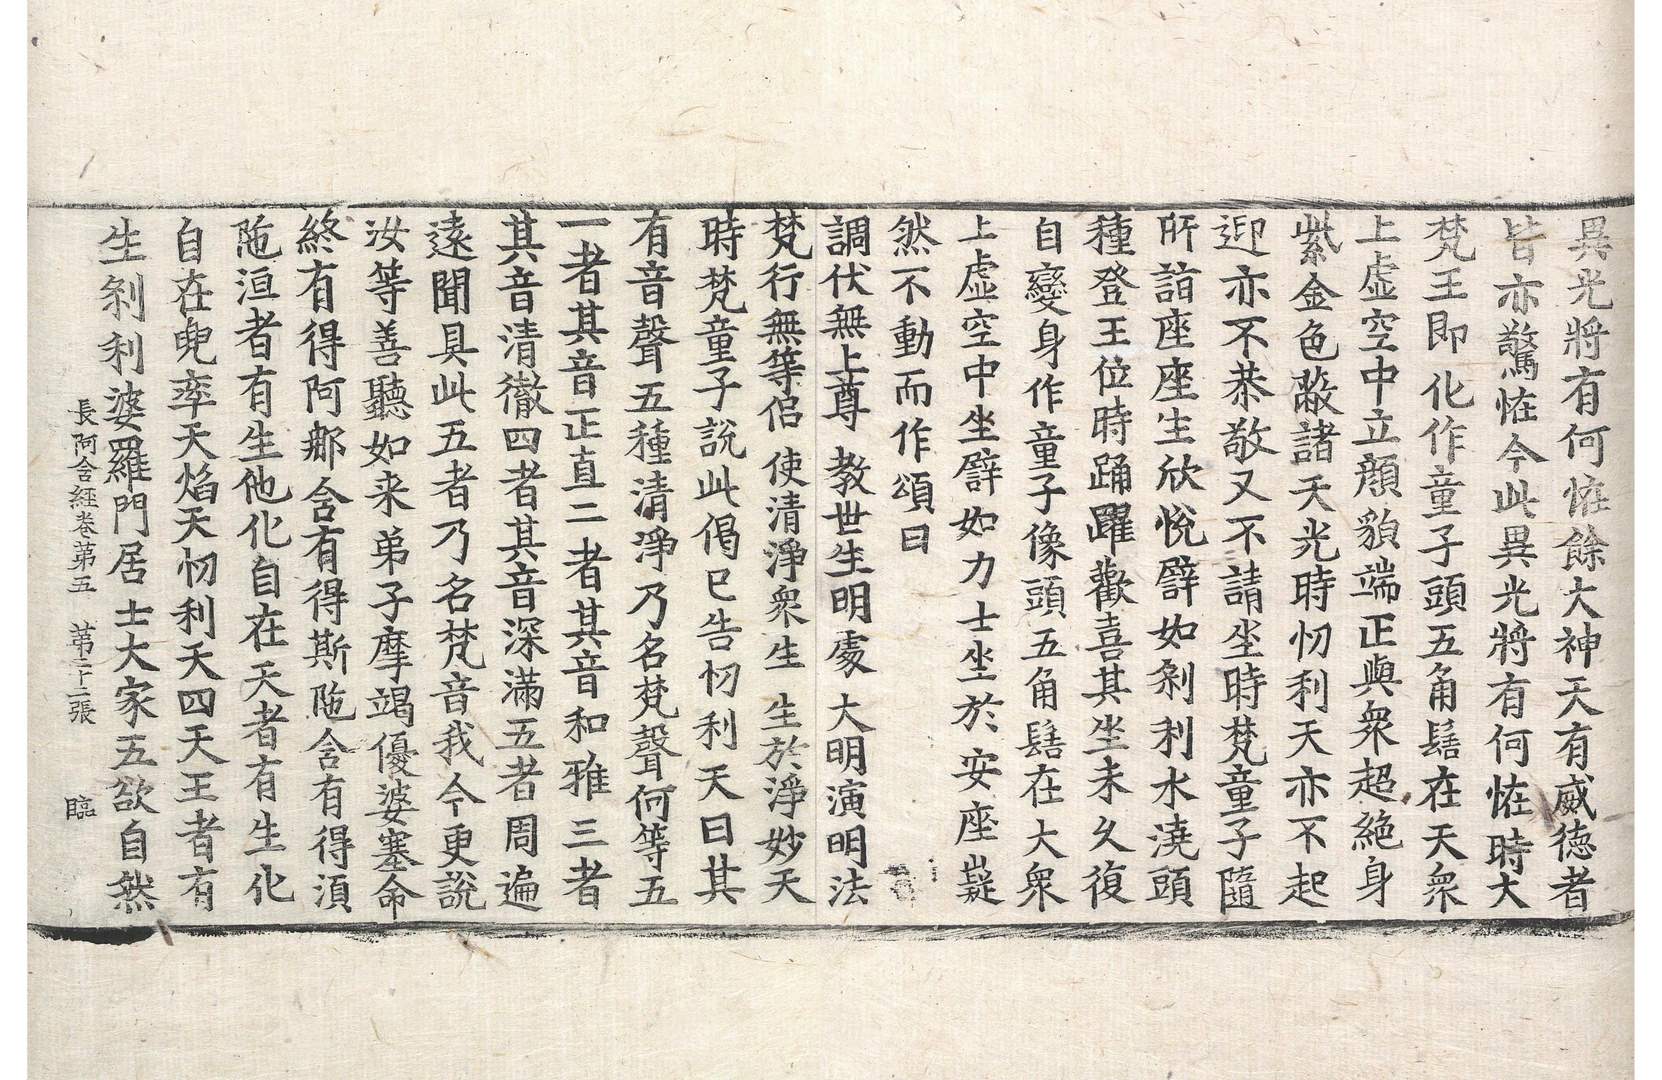 異光將有何恠餘大神天有威德者
皆亦驚恠今此異光將有何恠時大
梵王即化作童子頭五角髻在天衆
上虛空中立顔貌端正與衆超絶身
紫金色蔽諸天光時忉利天亦不起
迎亦不恭敬又不請坐時梵童子隨
所詣座座生欣悅譬如刹利水澆頭
種登王位時踊躍歡喜其坐未久復
自變身作童子像頭五角髻在大衆
上虛空中坐譬如力士坐於安座嶷
然不動而作頌曰
調伏無上尊 教世生明處 大明演明法
梵行無等侶 使清淨衆生 生於淨妙天
時梵童子說此偈已告忉利天曰其
有音聲五種清淨乃名梵聲何等五
一者其音正直二者其音和雅三者
其音清徹四者其音深滿五者周遍
遠聞具此五者乃名梵音我今更說
汝等善聽如来弟子摩竭優婆塞命
終有得阿那含有得斯陁含有得須
陁洹者有生他化自在天者有生化
自在兜率天焰天忉利天四天王者有
生刹利婆羅門居士大家五欲自然
長阿含經卷第五 第二十二張 臨